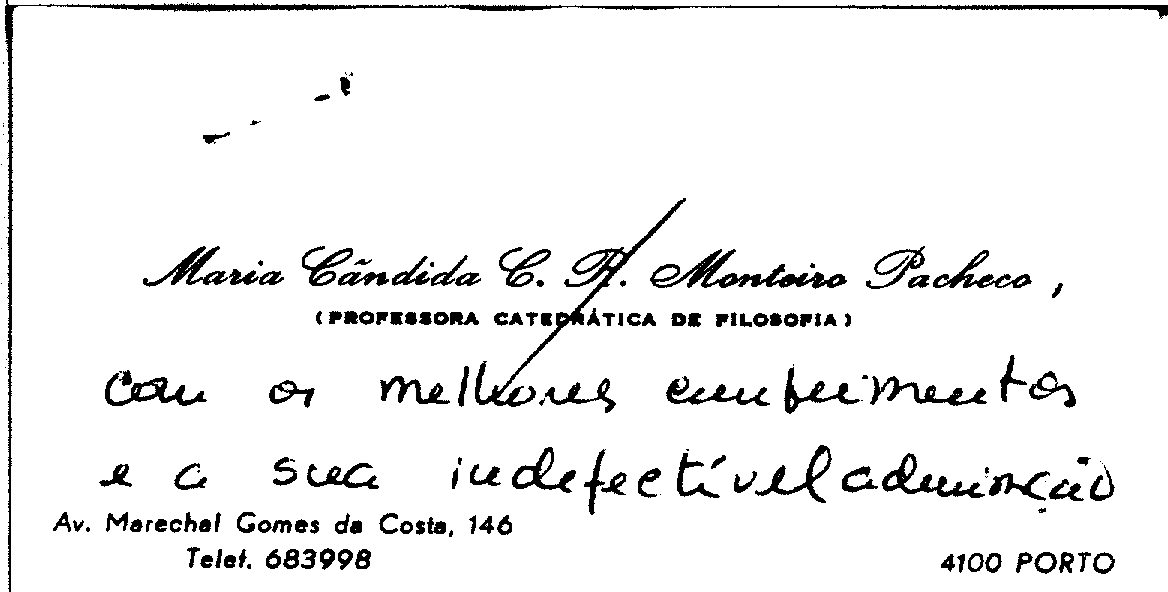 Maria Cândida C. R. Monteiro Pacheco,
(PROFESSORA CATEDRÁTICA DE FILOSOFIA)
com os melhores cumprimentos
e a sua indefectível admiração
Av. Marechal Gomes da Costa, 146
Telef. 683998
4100 PORTO